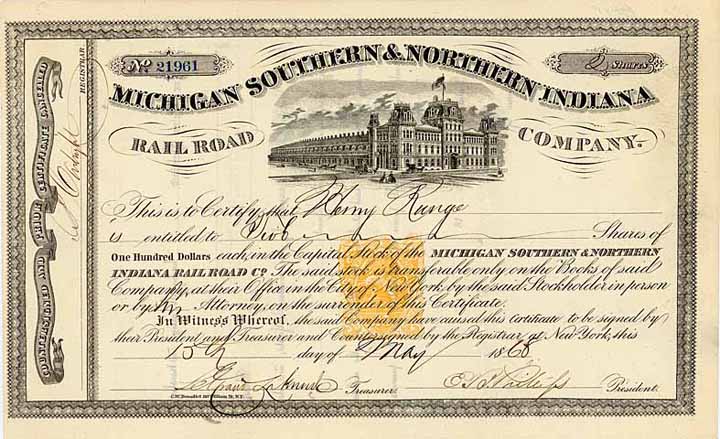 No 21961
Shares
MICHIGAN SOUTHERN & NORTHERN INDIANA
RAIL ROAD COMPANY.
COUNTERSIGNED AND PROOF CERTIFICATE CANCELLED
REGISTRAR.
This is to Certify that Henry Runge
is entitled to Shares of
One Hundred Dollars each, in the Capital Stock of the MICHIGAN SOUTHERN & NORTHERN
INDIANA RAIL ROAD Co. The said stock is transferable only on the Books of said
Company, at their Office in the City of New York by the said Stockholder in person
or by Attorney, on the surrender of this Certificate.
In Witness Whereof, the said Company have caused this Certificate to be signed by
their President and Treasurer and Countersigned by the Registrar at New York, this
day of May 1868
Treasurer. President.